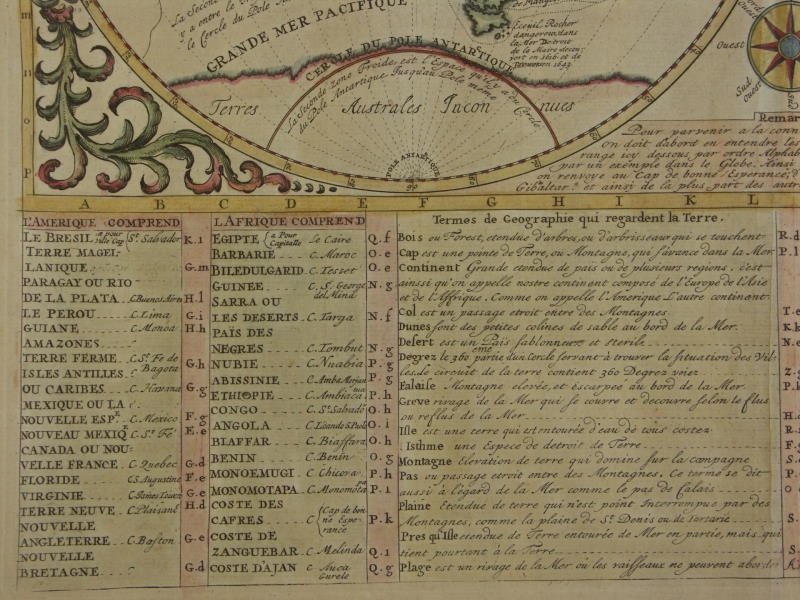 GRANDE MER PACIFIQUE
Ecueil, Rocher
dangereux, dans
la Mer
CERCLE DU POLE ANTARTIQUE
La Seconde zone Froide est l'Espace qu'il y a du Cercle
du Pole Antartique Jusqu'au Pole même
Terres Australes Incon nues
POLE ANTARTIQUE
90
Ouest
Sud
ouest
Remar
Pour parvenir a la conn
On doit d'abord en entendre les
range icy dessous, par ordre Alphab
par un exemple dans le Globe. Ainsi
on renvoye au Cap de bonne Esperance, d
Gibaltar. et ainsi de la plus part des autr
m
n
o
P
A B C D E F G H I K L
L'AMERIQUE COMPREND
LE BRESIL a pour Ville Cap St. Salvador K.1
TERRE MAGEL-
LANIQUE G.m
PARAGAY OU RIO
DE LA PLATA C. Buenos Aires H.l
LE PEROU C. Lima G.i
GUIANE C. Manoa H.h
AMAZONES
TERRE FERME C. Ste. Fe de Bagota G.h
ISLES ANTILLES
OU CARIBES C. Havana G.g
MEXIQUE OU LA
NOUVELLE ESP. C. Mexico F.g
NOUVEAU MEXIQ C. Ste. Fe E.e
CANADA OU NOU-
VELLE FRANCE C. Quebec G.d
FLORIDE C. S. Augustine F.e
VIRGINIE C. James Town G.e
TERRE NEUVE C. Plaisane H.d
NOUVELLE
ANGLETERRE C. Boston G.e
NOUVELLE
BRETAGNE G.d
L'AFRIQUE COMPREND
EGIPTE a Pour Capitalle Le Caire Q.f
BARBARIE C. Maroc O.e
BILEDULGARID C. Tesset O.e
GUINEE C. S. George del Mina N.g
SARRA OU
LES DESERTS C. Targa N.f
PAÏS DES
NEGRES C. Tombut N.g
NUBIE C. Nuabia P.g
ABISSINIE P.g
ETHIOPIE C. Ambiaca P.h
CONGO C. St. Salvador O.h
ANGOLA C. Loando S. Paul O.i
BIAFFAR C. Biaffara O.h
BENIN C. Benin O.g
MONOEMUGI C. Chicova P.h
MONOMOTAPA C. Monomota pa P.1
COSTE DES
CAFRES Cap de bon ne Esperance P.k
COSTE DE
ZANGUEBAR C. Melinda Q.1
COSTE D'AJAN Q.g
Termes de Geographie qui regardent la Terre.
Bois ou Forest, etendue d'arbres, ou d'arbrisseaux qui se touchent R.d
Cap est une pointe de Terre, ou Montagne, qui s'avance dans la Mer P.l
Continent Grande etendue de païs ou de plusieurs regions. c'est
ainsi qu'on appellé nostre continent composé de l'Europe de l'Asie
et de l'Affrique. Comme on appelle l'Amerique L'autre continent
Col est un passage etroit entre des Montagnes T.e
Dunes sont des petites colines de sable au bord de la Mer. K.h
Desert est un Païs sablonneux et sterile N.e
Degrez le 361eme partie d'un Cercle servant à trouver la situation des Vil-
les. de circuit de la terre contient 360 Degrez voiez Z.g
Falaise Montagne elevée, et escarpée au bord de la Mer P.
Greve rivage de la Mer qui se couvre et decouvre selon le flus
ou reflus de la Mer H.
Isle est une terre qui est entourée d'eau de tous costez R.
Isthme une Espece de detroit de Terre F.
Montagne Elevation de terre qui domine sur la campagne S.
Pas ou passage etroit entre des Montagnes. Ce terme se dit P.
aussi à l'égard de la Mer comme le pas de Calais O
Plaine Etendue de terre qui n'est point Interrompue par des
Montagnes, comme la plaine de St. Denis ou de tartarie S.
Presqu'Isle etendue de Terre entourée de Mer en partie, mais qui
tient pourtant à la Terre S.
Plage est un rivage de la Mer où les vaisseaux ne peuvent abord K